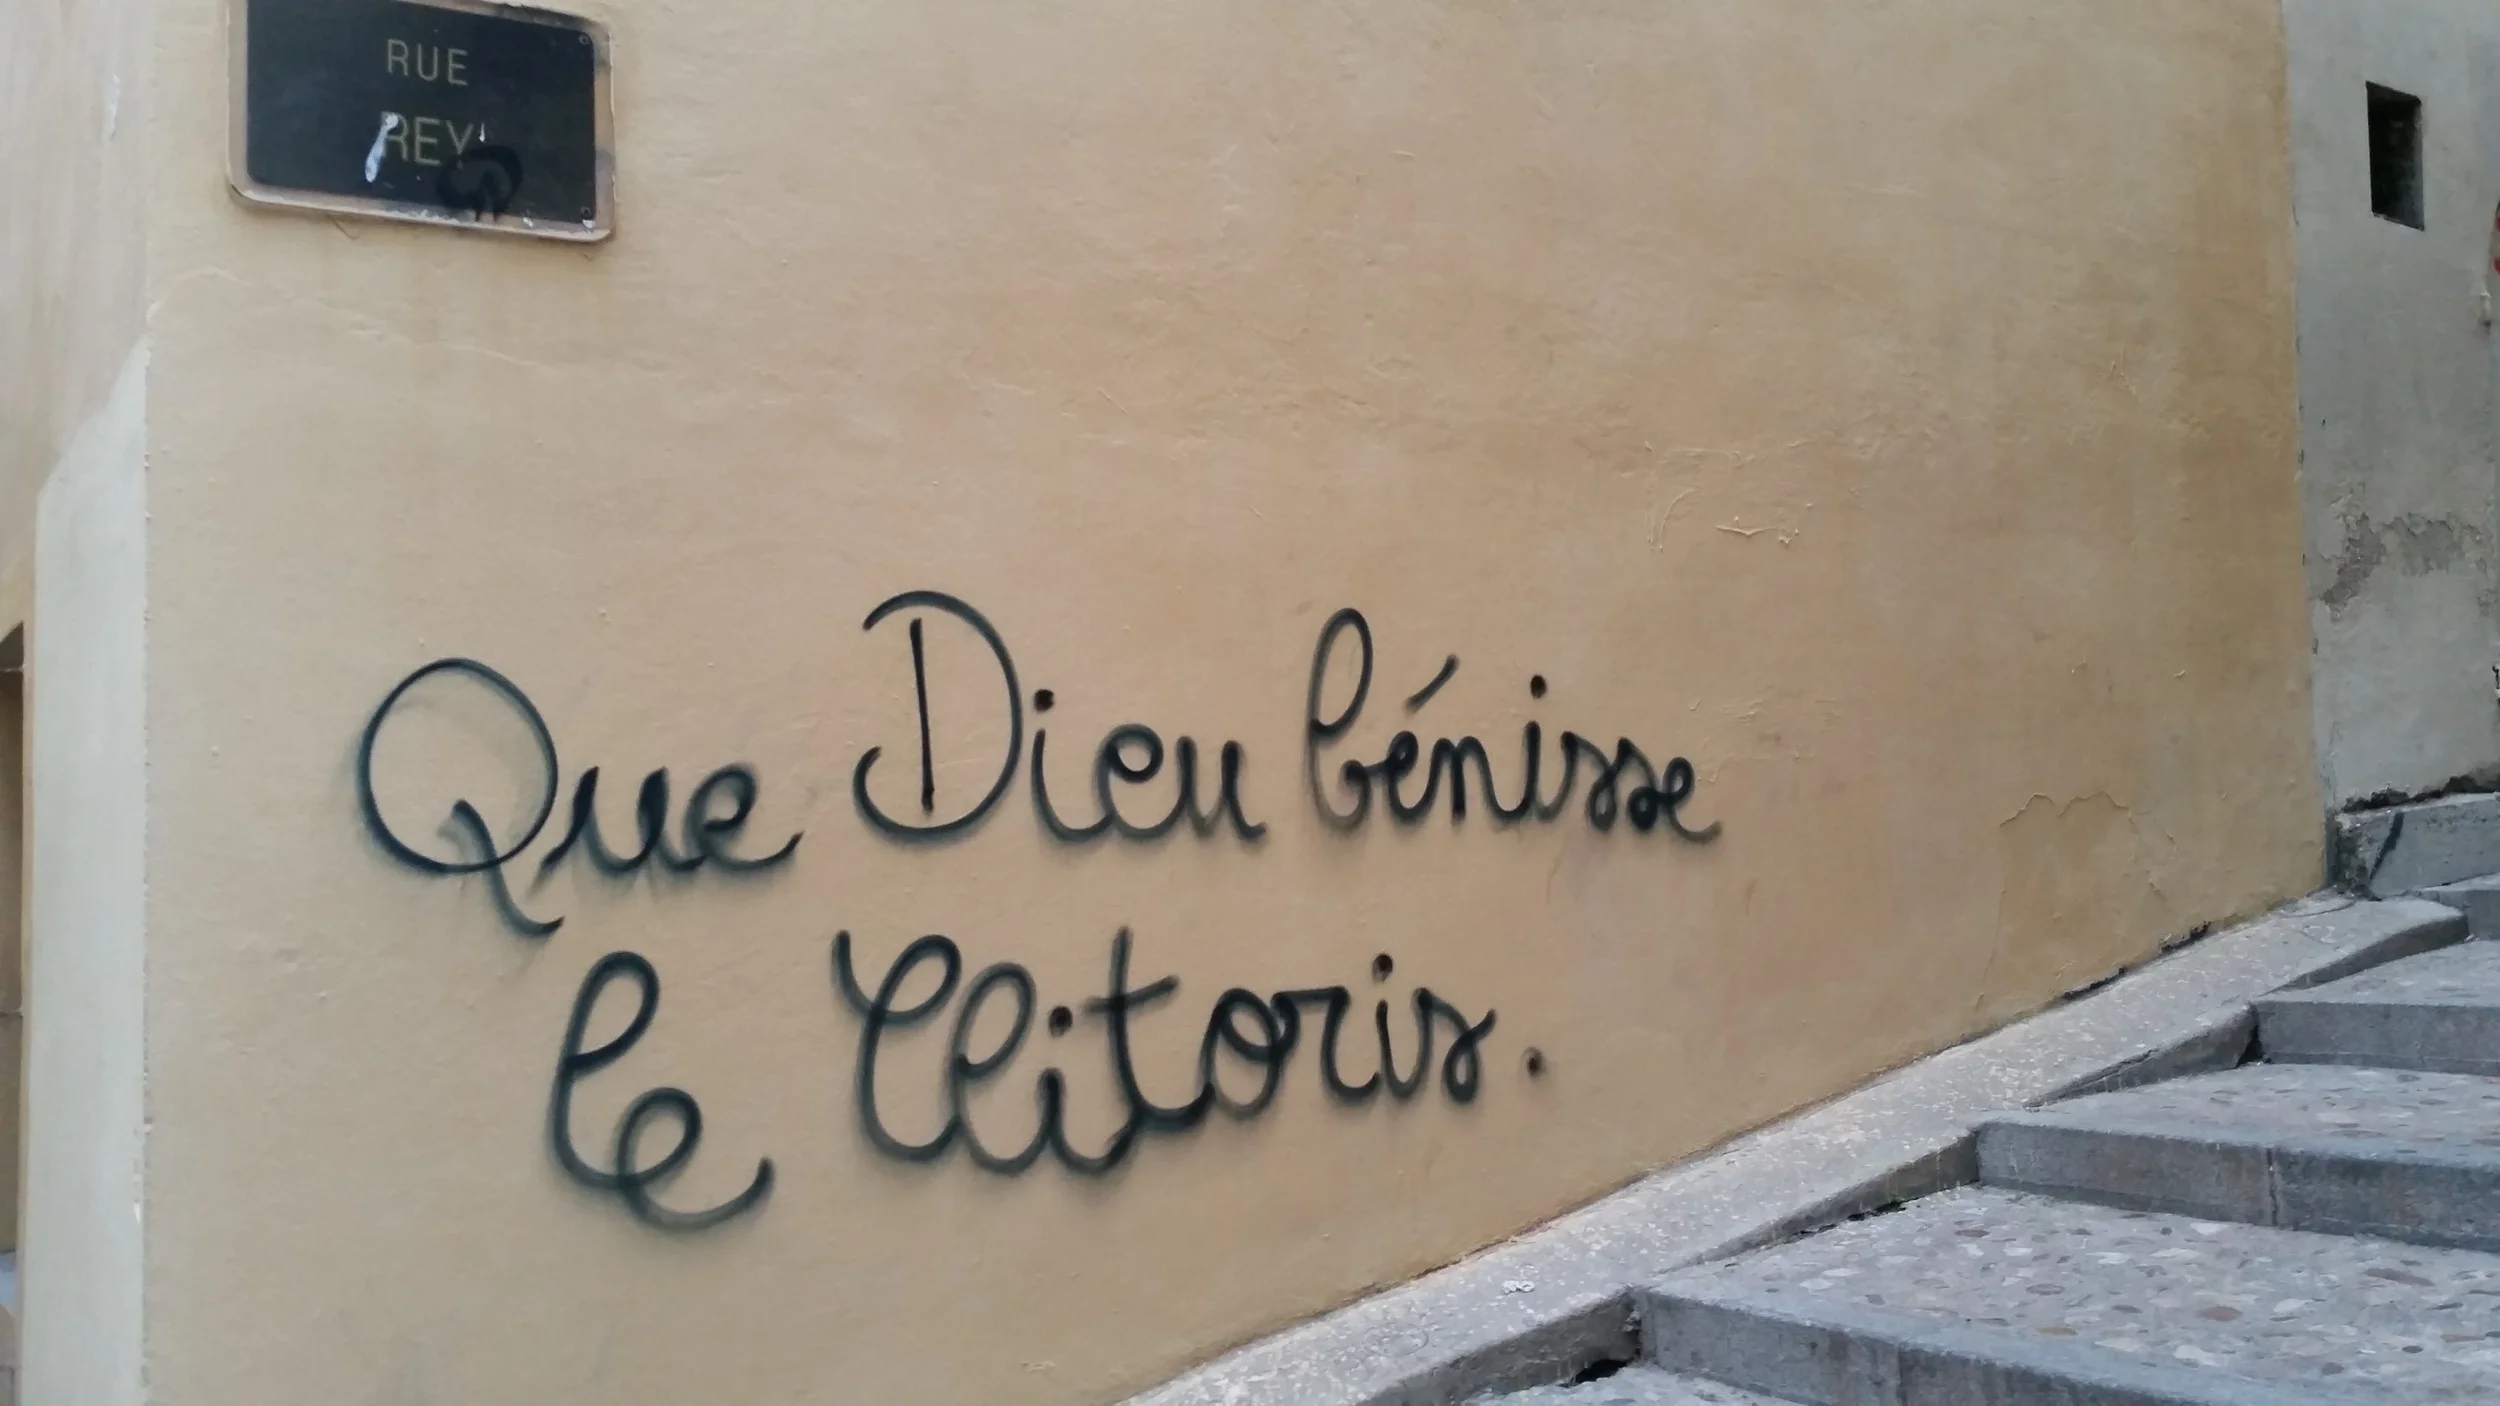 RUE
REY
Que Dieu bénisse
le Clitoris.